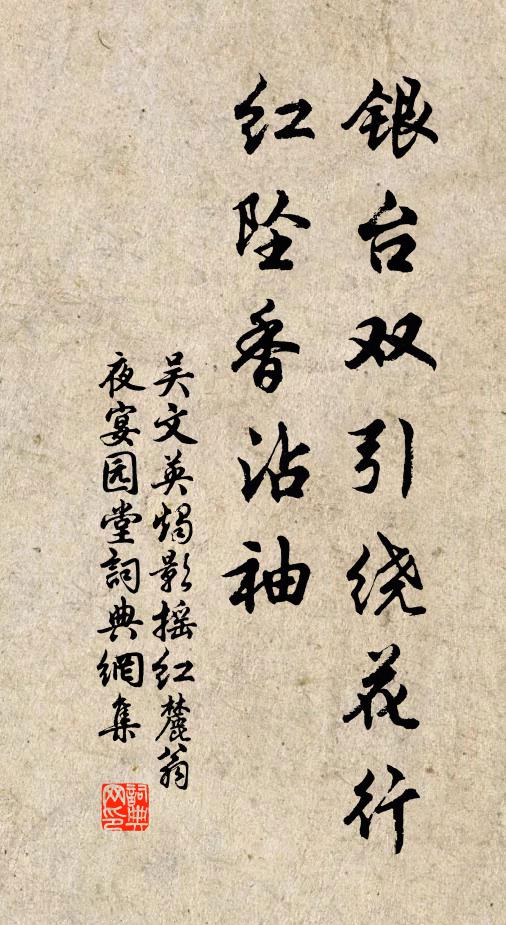 银台双引绕花行
红坠香沾袖
吴文英烛影摇红麓翁
夜宴园堂詞典網集
詞典
网印